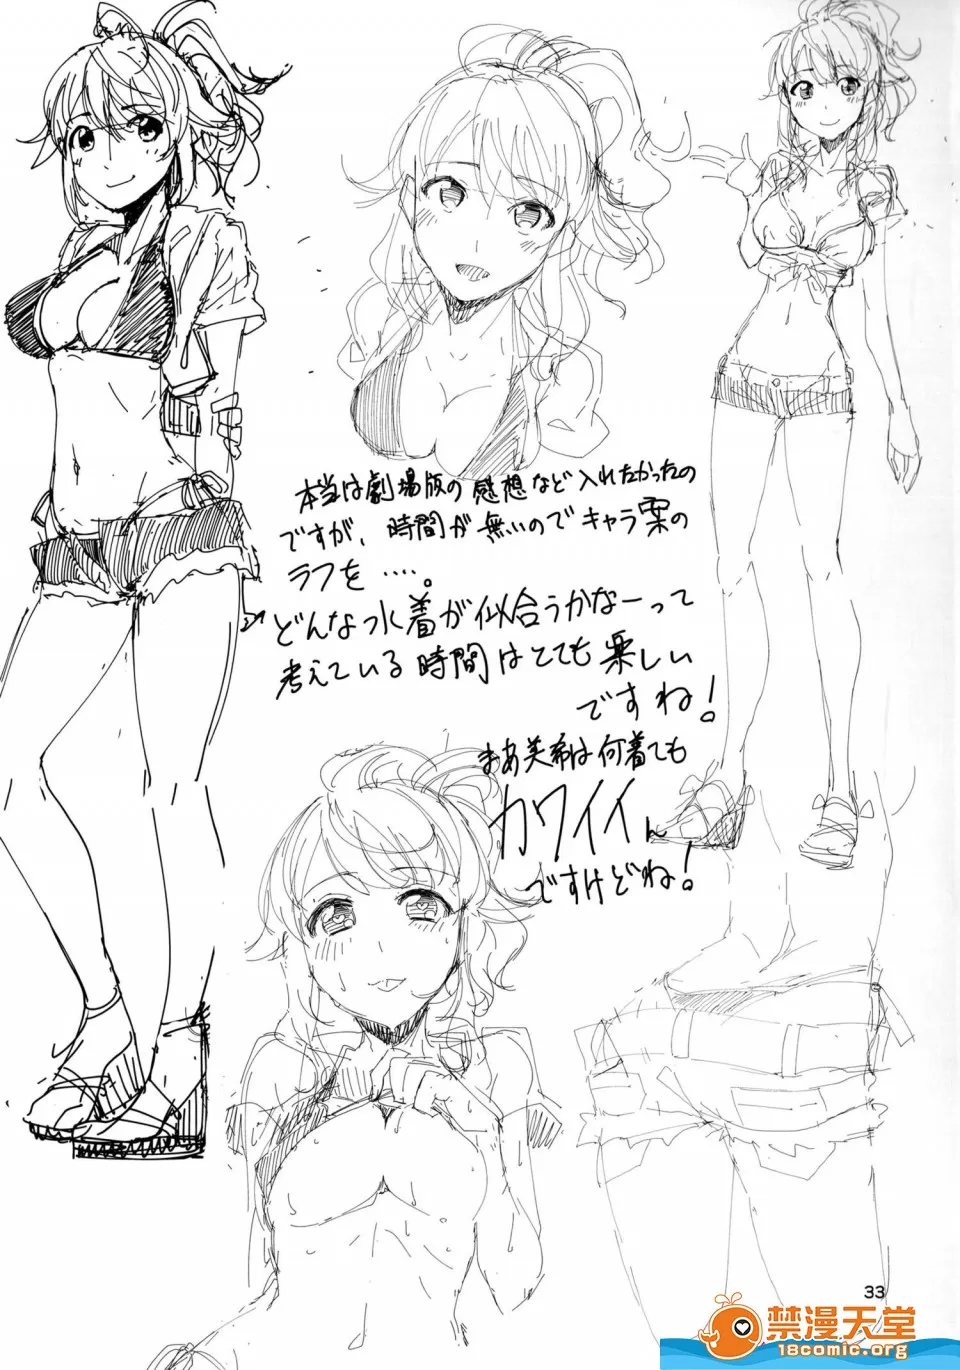 本当は劇場版の感想など入れたかったの
ですが、時間が無いのでキャラ案の
ラフを‥‥。
どんな水着が似合うかなーって
考えている時間はとても楽しい
ですね！
まあ美希は何着ても
カワイイん
ですけどね！
33
禁漫天堂
18comic.org